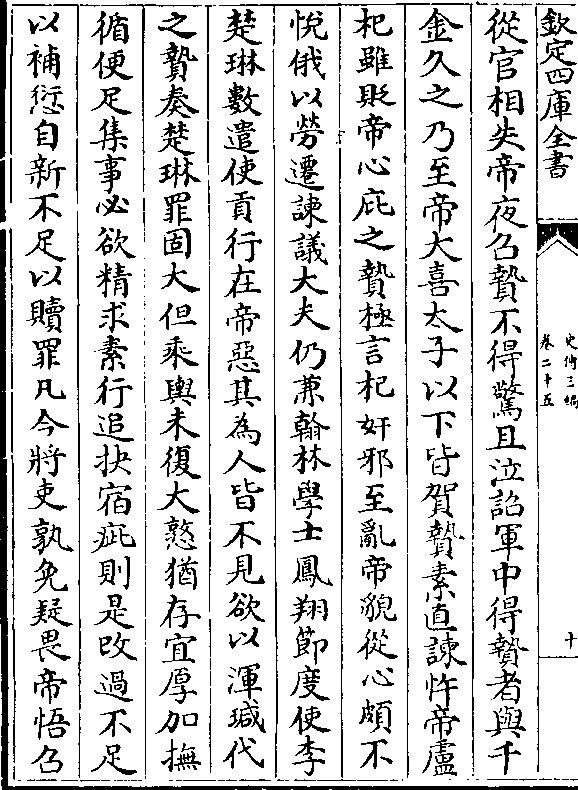 欽定四庫全書
史傳三編
卷二十五
十
從官相失帝夜召贄不得驚且泣詔軍中得贄者與千
金久之乃至帝大喜太子以下皆賀贄素直諫忤帝盧
杞雖貶帝心庇之贄極言杞奸邪至亂帝貌從心頗不
悅俄以勞遷諫議大夫仍兼翰林學士鳳翔節度使李
楚琳數遣使貢行在帝惡其為人皆不見欲以渾瑊代
之贄奏楚琳罪固大但乘輿未復大憝猶存宜厚加撫
循便足集事必欲精求素行追抉宿疵則是改過不足
以補愆自新不足以贖罪凡今將吏孰免疑畏帝悟召